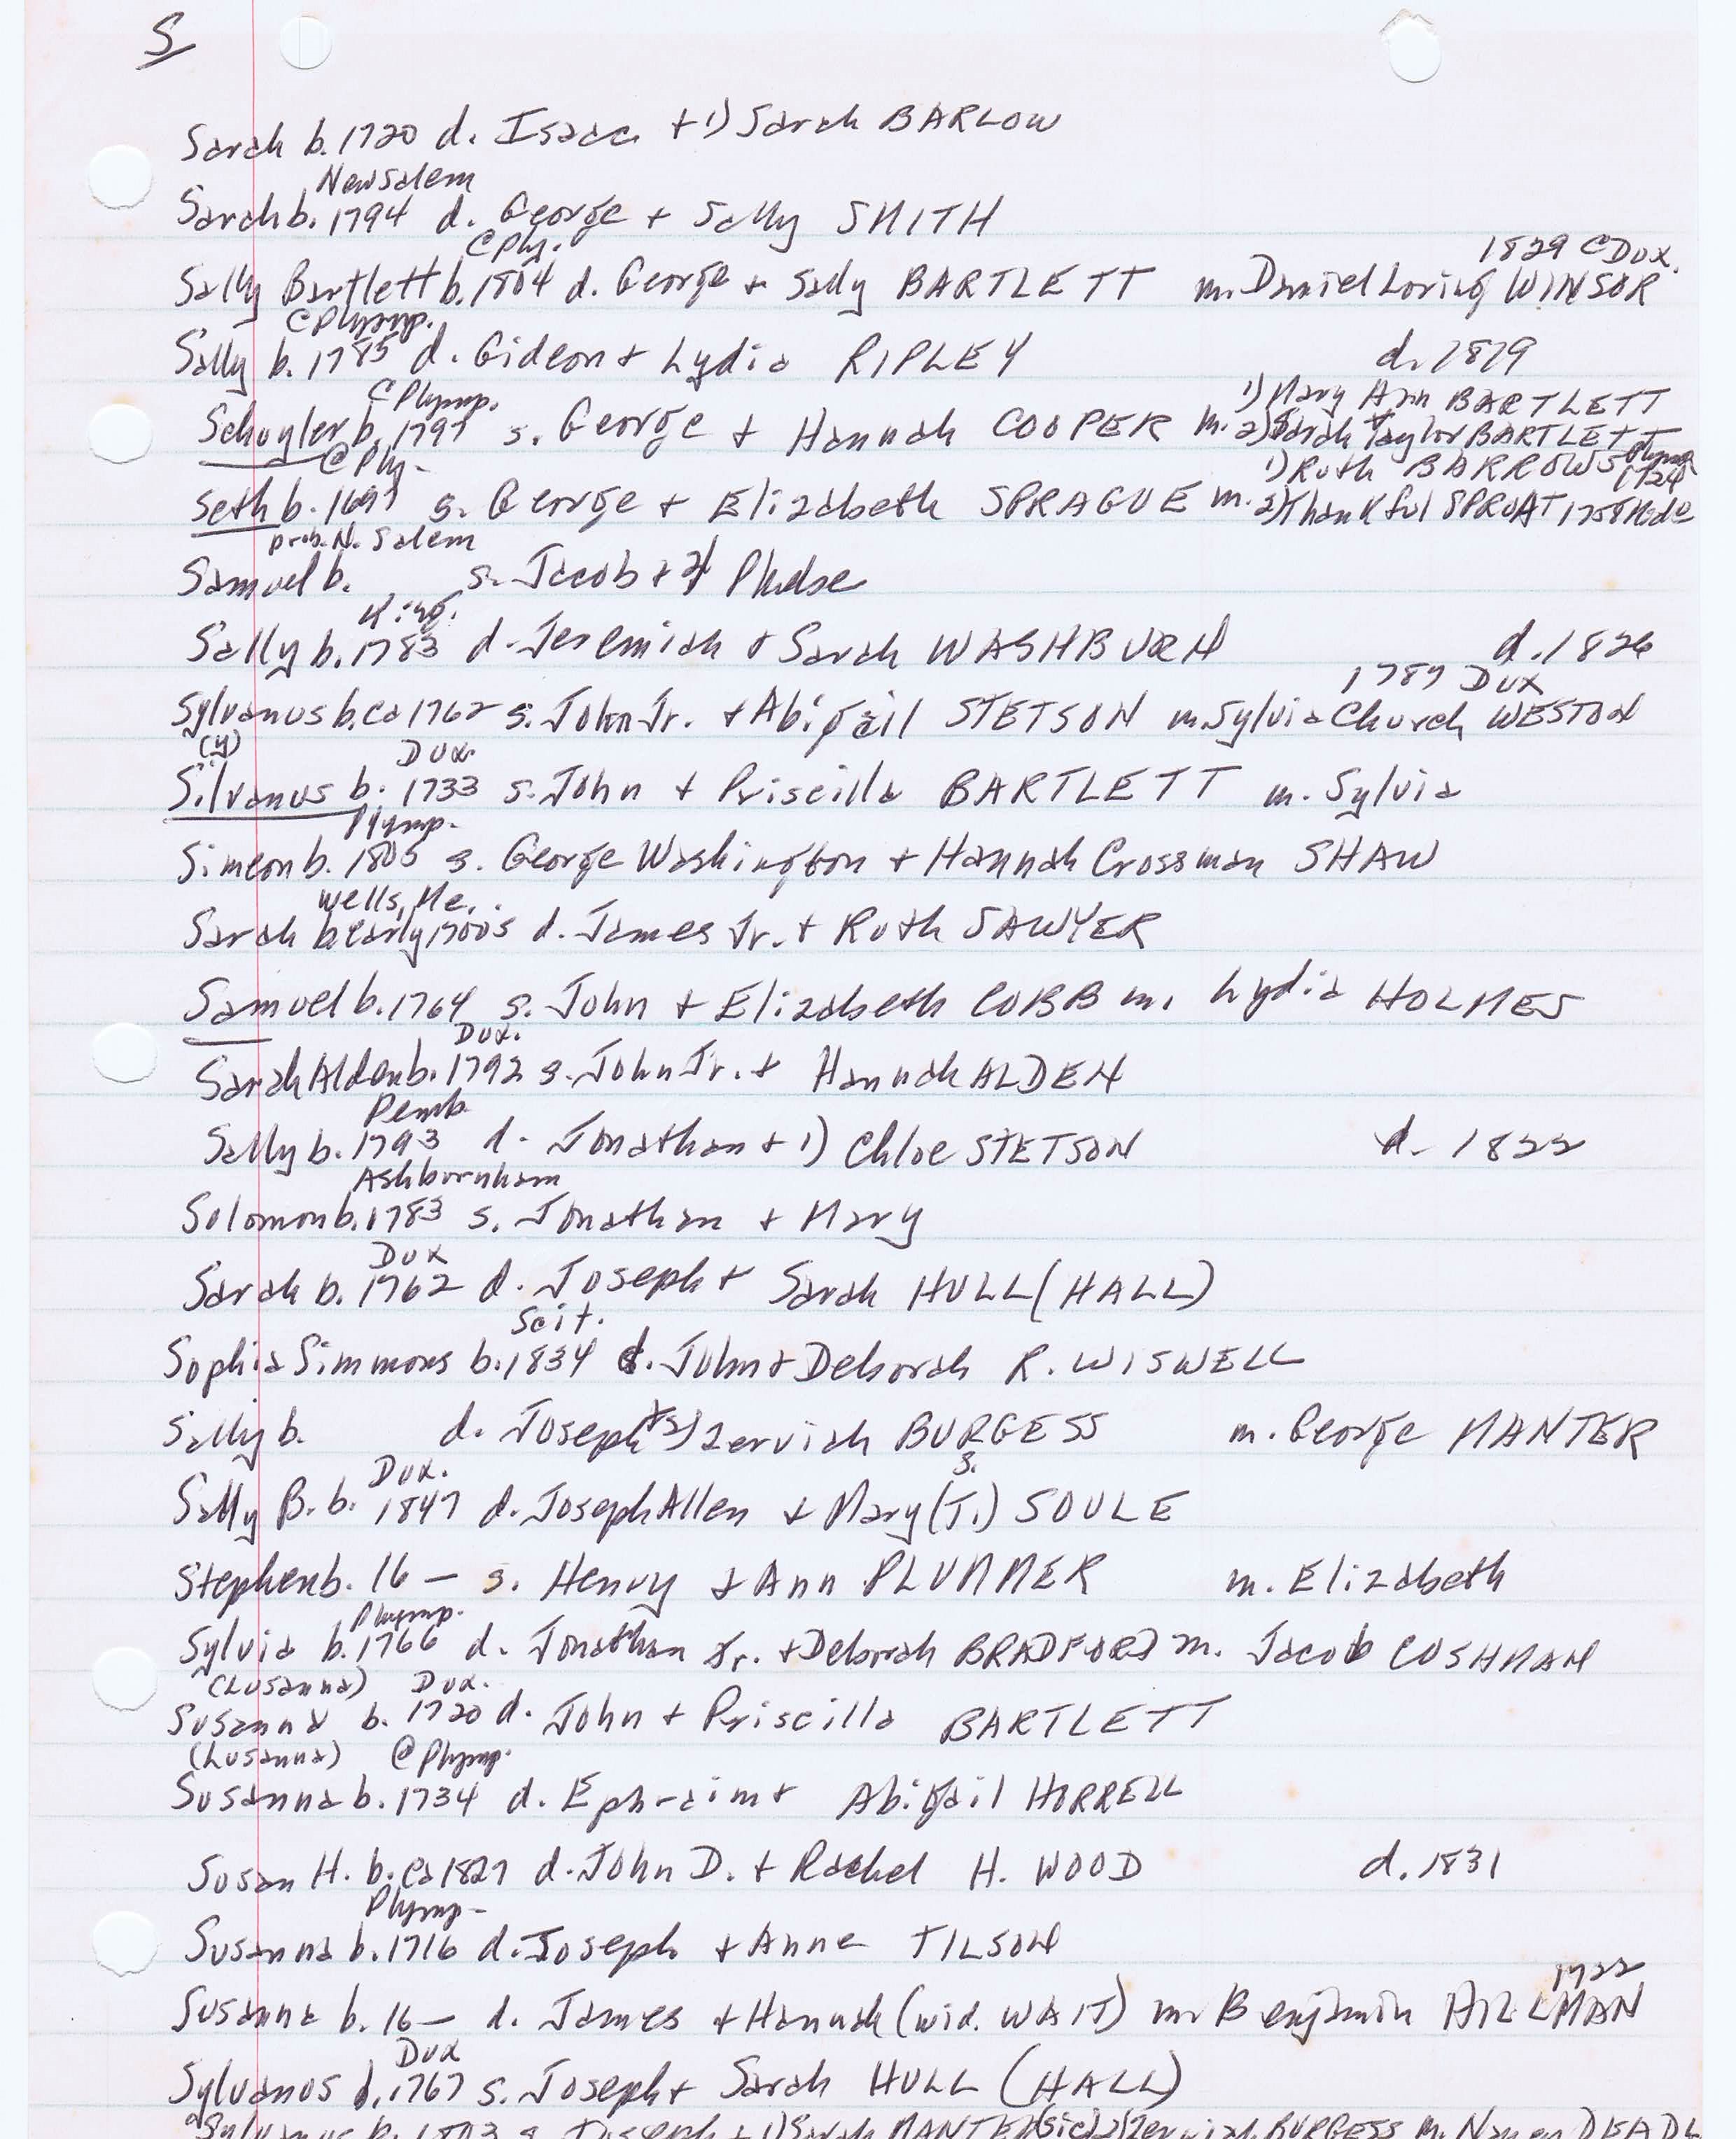 S
Sarah b. 1720 d. Isaac + 1) Sarah BARLOW
New Salem
Sarah b. 1794 d. George + Sally SMITH
@ Ply. 1829 @ Dux.
Sally Bartlett b. 1804 d. George + Sally BARTLETT m. Daniel Loring WINSOR
@ Plymp.
Sally b. 1785 d. Gideon + Lydia RIPLEY d. 1879
@ Plymp. 1) Mary Ann BARTLETT
Schuyler b. 1797 s. George + Hannah COOPER m. 2) Sarah Taylor BARTLETT
@ Ply. 1) Ruth BARROWS Plymp 1724
Seth b. 1697 s. George + Elizabeth SPRAGUE m. 2) Thankful SPROAT 1758
prob. N. Salem
Samuel b. s. Jacob + Phebe
King.
Sally b. 1783 d. Jeremiah + Sarah WASHBURN d. 1826
1787 Dux
Sylvanus b. ca 1762 s. John Jr. + Abigail STETSON m. Sylvia Church WESTON
(y) Dux.
Silvanus b. 1733 s. John + Priscilla BARTLETT m. Sylvia
Plymp.
Simeon b. 1805 s. George Washington + Hannah Crossman SHAW
Wells, Me.
Sarah b. early 1700s d. James Jr. + Ruth SAWYER
Samuel b. 1764 s. John + Elizabeth COBB m. Lydia HOLMES
Dux.
Sarah Alden b. 1792 s. John Jr. + Hannah ALDEN
Pemb.
Sally b. 1793 d. Jonathan + 1) Chloe STETSON d. 1822
Ashburnham
Solomon b. 1783 s. Jonathan + Mary
Dux
Sarah b. 1762 d. Joseph + Sarah HULL (HALL)
Scit.
Sophia Simmons b. 1834 d. John + Deborah R. WISWELL
Sally b. d. Joseph + 2) Zerviah BURGESS m. George MANTER
Dux. S.
Sally B. b. 1847 d. Joseph Allen + Mary (T.) SOULE
Stephen b. 16— s. Henry + Ann PLUMMER m. Elizabeth
Plymp.
Sylvia b. 1766 d. Jonathan Jr. + Deborah BRADFORD m. Jacob CUSHMAN
(Lusanna) Dux.
Susanna b. 1720 d. John + Priscilla BARTLETT
(Lusanna) @ Plymp.
Susanna b. 1734 d. Ephraim + Abigail HORRELL
Susan H. b. ca 1827 d. John D. + Rachel H. WOOD d. 1831
Plymp.
Susanna b. 1716 d. Joseph + Anne TILSON
1722
Susanna b. 16— d. James + Hannah (wid. WAIT) m. Benjamin HILLMAN
Dux
Sylvanus b. 1767 s. Joseph + Sarah HULL (HALL)
Sylvanus b. 1803 s. Joseph + 1) Sarah MANTER (sic) 2) Zerviah BURGESS m. Nancy